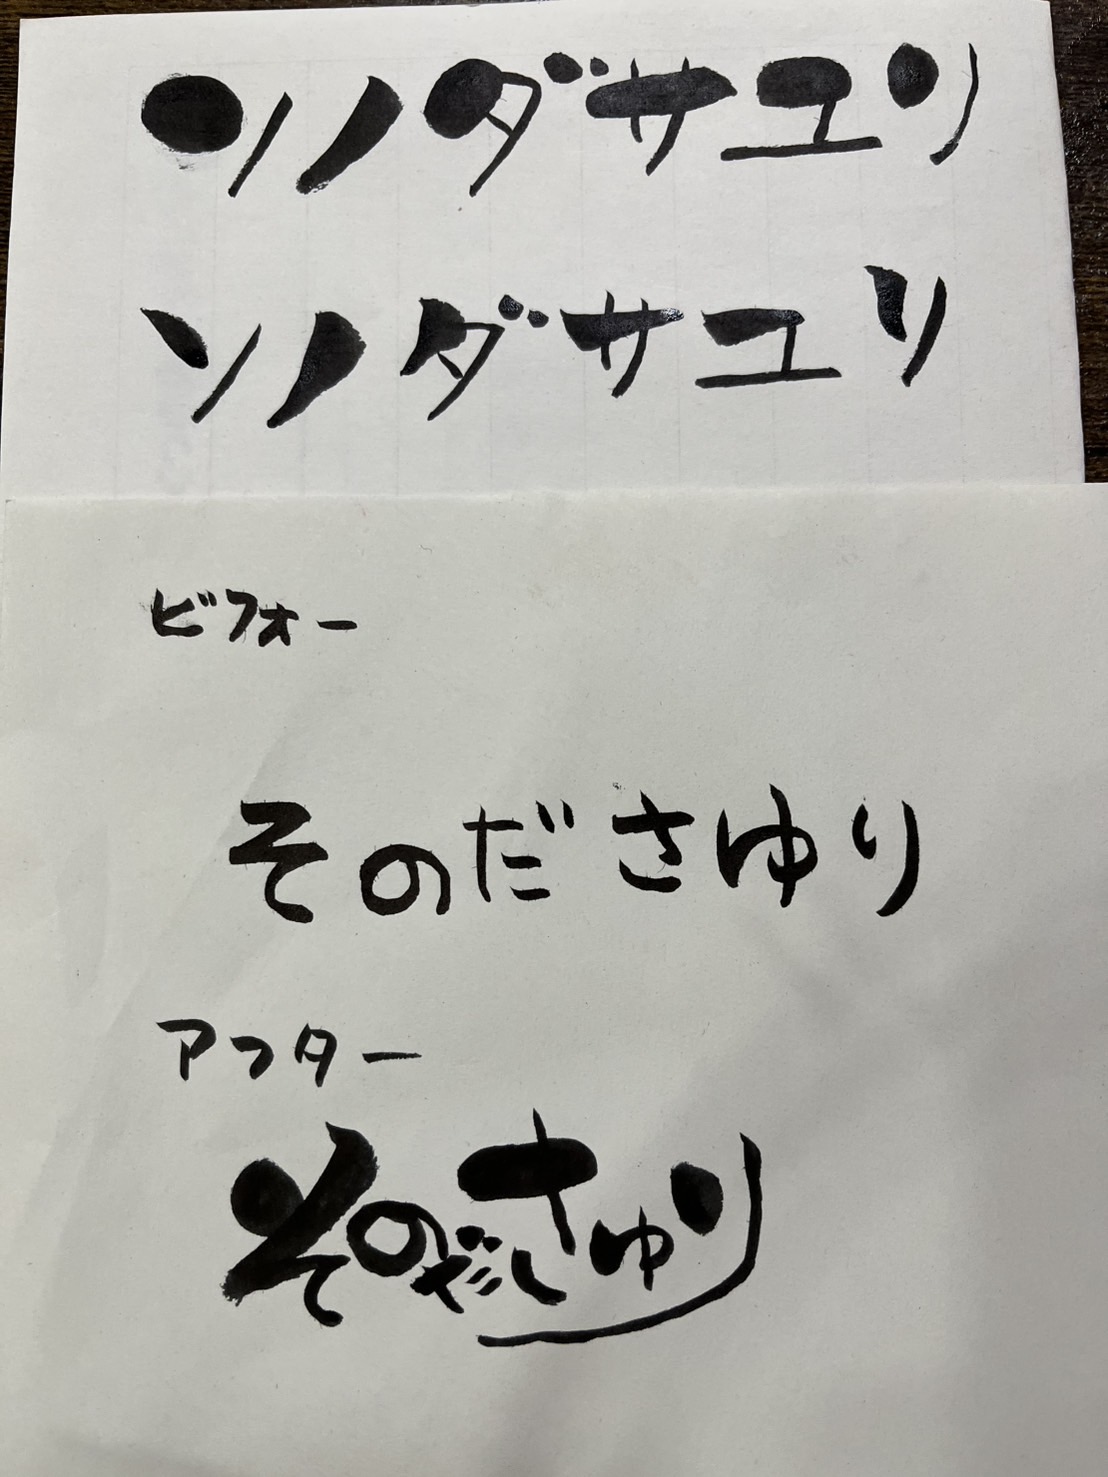 ソノダサユリ
ソノダサユリ
ビフォー
そのださゆり
アフター
そのださゆり